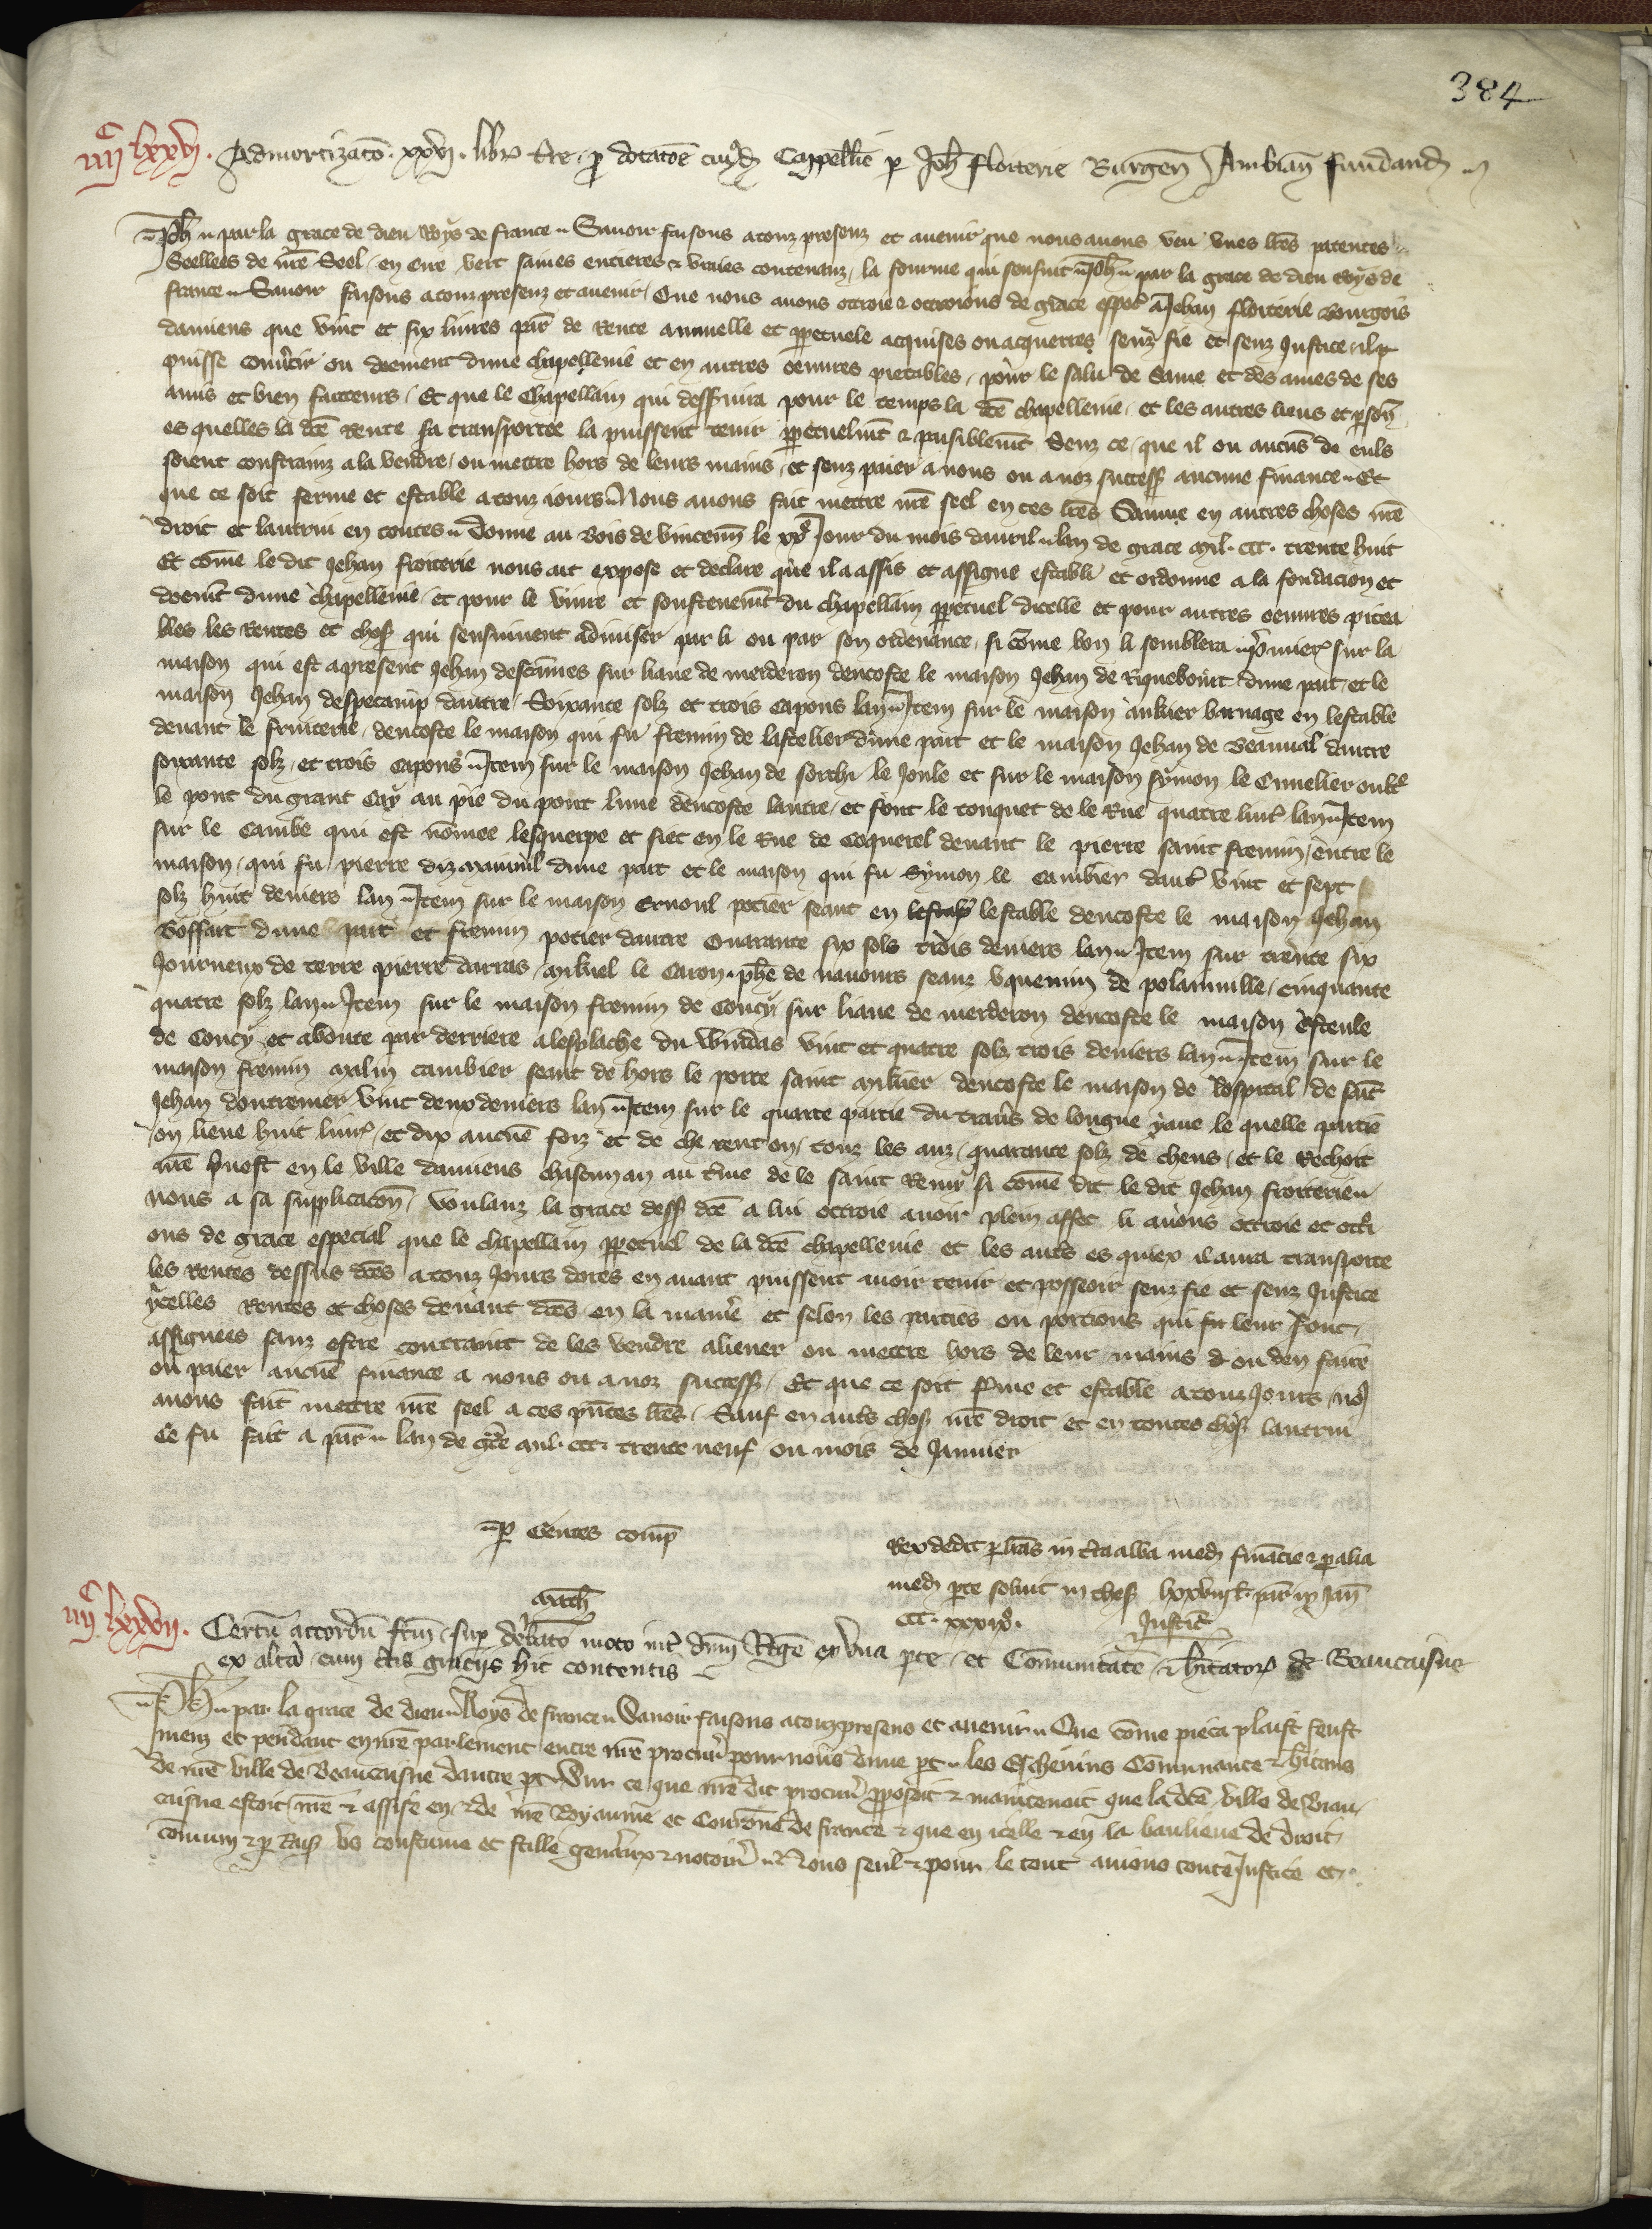 384
IIIIc LXXVI. Admortizatio. xxvi. libr. t're. p dotatoe cuiusd Cappellie p Joh floiterie Burgen Ambian fundand
Ph par la grace de dieu Roys de france. Sauoir faisons a touz presenz et auenir que nous auons veu vnes lres patentes
Seellees de nre Seel en cire vert saines entieres & vraies contenanz la fourme qui sensuit. Ph. par la grace de dieu Roys de
france. Sauoir faisons a touz presenz et auenir Que nous auons ottroie & ottroions de grace espec a Jehan floiterie bourgois
damiens que vint et six liures par de Rente annuelle et ppetuele acquises ou a acquerres senz fie et senz Justice il
puisse conuertir ou doement dune chapellenie et en autres oeuures pietables, pour le salu de same et des ames de ses
amis et bien facteurs, Et que le Chapellain qui desseruira pour le temps la dce chapellenie, et les autres lieus et pson
es quelles la dce Rente sa transportee la puissent tenir ppetuelmt & paisiblemt senz ce que il ou aucus de euls
soient constrainz a la vendre, ou mettre hors de leurs mains, et senz paier a nous ou a noz success aucune finance. Et
que ce soit ferme et estable a touz iours Nous auons fait mettre nre seel en ces lres Sauue en autres choses nre
droit et lautrui en toutes. Donne au Bois de vincenn le xxe Jour du mois dauril. lan de grace mil. ccc. trente huit
Et come le dit Jehan froiterie nous ait expose et declare que il a assis et assigne establi et ordonne a la fondacion et
doemt dune chapellenie, et pour le viure et soustenemt du chapellain ppetuel dicelle et pour autres oeuures pitea
bles les Rentes et chos qui sensuiuent adiuiser par li ou par son ordenance, si come bon li semblera. pmier sur la
maison qui est apresent Jehan destannes sur liaue de merderon dencoste le maison Jehan de Riquebourt dune part, et le
maison Jehan despecamp dautre, Soixante solz et trois capons lan. Item sur le maison ankier barnage en lestable
deuant le fruiterie, dencoste le maison qui fu fremin de lastelier dune part et le maison Jehan de Beauual dautre
soixante solz, et trois capons. Item sur le maison Jehan de sorchi le Jonle et sur le maison symon le Cuuelier oultre
le pont du grant Cay au pie du pont lune dencoste lautre, et font le touquet de le Rue quatre liur lan. Item
sur le Cambe qui est nomee lesquerpe et siet en le Rue de Coquerel deuant le pierre saint fremin, entre le
maison, qui fu pierre dune part et le maison qui fu Symon le cambier daut vint et sept
solz huit deniers lan. Item sur le maison Ernoul potier seant en lestable dencoste le maison Jehan
Boffart dune part et fremin potier dautre Quarante six sols trois deniers lan. Item sur trente six
Journeux de terre pierre darras, mikiel le Caron, phe de nauours seanz v quemin de polainuille, cinquante
quatre solz lan. Item sur le maison fremin de Coucy sur liaue de merderon dencoste le maison esteule
de Coucy et aboute par derriere a lesplache du Windas vint et quatre solz trois deniers lan. Item sur le
maison fremin malin cambier seant de hors le porte saint mikiel dencoste le maison de lospital de saint
Jehan doutremer vint deux deniers lan. Item sur le quarte partie du trauers de longue yaue le quelle partie
on lieue huit liur, et dix aucune foiz et de che rent on, touz les anz, quarante solz de chens, et le Rechoit
nre puost en le ville damiens chascun an au tme de le saint Remy, si come dit le dit Jehan froiterie.
Nous a sa supplicacon, voulanz la grace dess dce a lui ottroie auoir plein effec li auons ottroie et ottri
ons de grace especial que le chapellain ppetuel de la dce chapellenie et les auts es quiex il aura transporte
les Rentes dessus dces a touz Jours dores en auant puissent auoir tenir et posseoir senz fie et senz Justice
ycelles Rentes et choses deuant dces en la maniere et selon les parties ou portions qui sur leur sont
assignees sanz estre contraint de les vendre aliener ou mettre hors de leur mains & ou den faire
ou paier aucue finance a nous ou a noz success, Et que ce soit fme et estable a touz Jours, no9
auons fait mettre nre seel a ces pntes lres, Sauf en auts chos nre droit et en toutes chos lautrui
Ce fu fait a par. lan de gce mil. ccc. trente neuf ou mois de Januier
p Gentes comp
Rex dedit p lras in cera alba med finacie & p alia
med pte soluit in thes lxxviii l. par ix Jan
CCC. xxxix.
IIIIc LXXVII. Certu accordu fcm, sup debato moto int dnm Rege ex vna pte, et Comunitate & hitator de Beaucaisne
ex alta, cum ctis graciis hic contentis
Ph. par la grace de dieu Roys de france. Sauoir faisons a touz presens et auenir. Que come pieca plaist feust
meuz et pendant en nre parlement entre nre procur pour nous dune pt. les Escheuins Comunaute & hitans
de nre ville de Beaucaisne dautre pt. Sur ce que nre dit procur pposoit & maintenoit que la dce ville de Beau
caisne estoit nre & assise en & de nre Royaume et Couronne de france & que en icelle & en la banlieue de droit
comun & p Rais vs coustume et stille generaux & notoirs. Nous seul & pour le tout auions toute Justice et